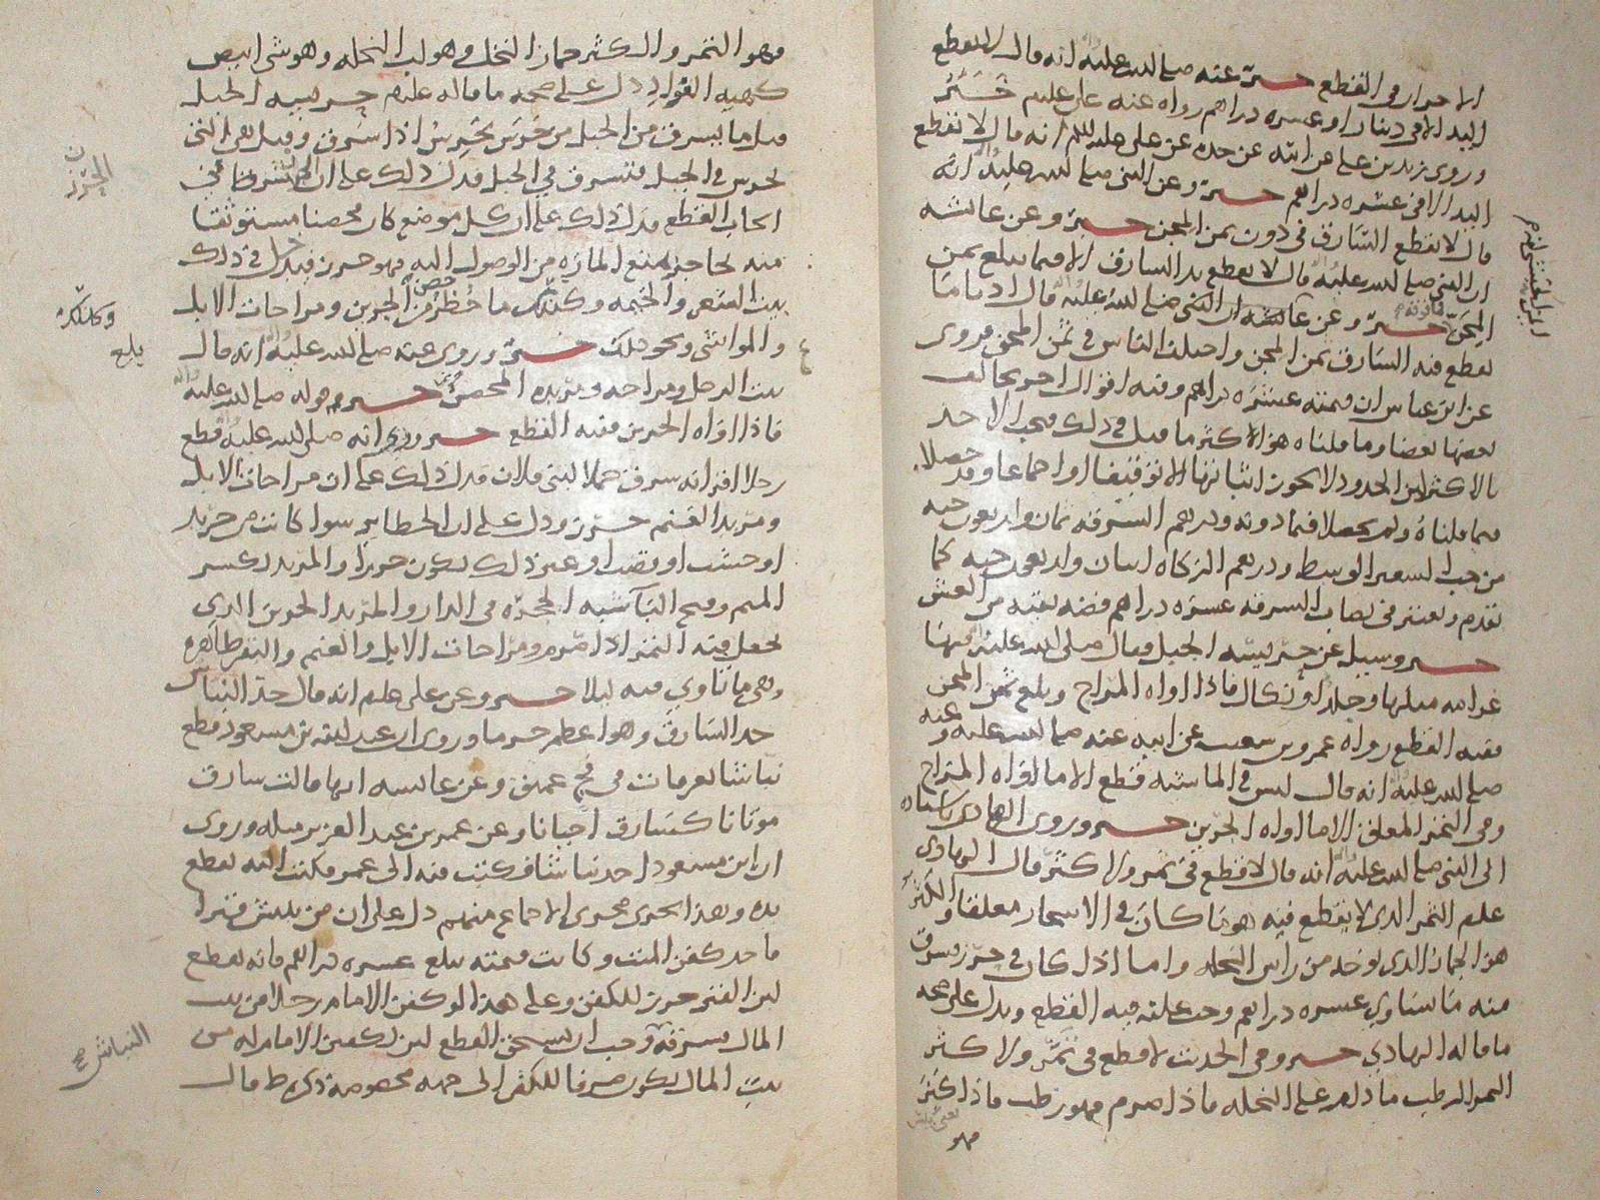 الاحرار في القطع خبر عنه صلى الله عليه انه قال لا تقطع
اليد الا في دينار او عشره دراهم رواه عنه علي عليلم خبر
وروى زيد بن علي عن ابيه عن جده عن علي عليلم انه قال لا تقطع
اليد الا في عشره دراهم خبر وعن النبي صلى الله عليه انه
قال لا تقطع السارق في دون ثمن المجن خبر وعن عائشه
ان النبي صلى الله عليه قال لا تقطع يد السارق الا فيما بلغ ثمن
المجن خبر وعن عائشه ان النبي صلى الله عليه قال ادنا ما
تقطع فيه السارق ثمن المجن واختلف الناس في ثمن المجن فروى
عن ابن عباس ان قيمته عشره دراهم وفيه اقوال اخر يخالف
بعضها بعضا وما قلناه هو الاكثر ما قيل في ذلك فيجب الاخذ
بالاكثر لان الحدود لا يجوز اثباتها الا توقيفا او اجماعا وقد حصلا
فيما قلناه ولم يحصلا فيما دونه ودرهم السرقه ثمان واربعون حبه
من حب الشعير الوسط ودرهم الزكاه اثنان واربعون حبه كما
تقدم ويعتبر في نصاب السرقه عشره دراهم فضه نقيه من الغش
خبر وسئل عن حريسه الجبل فقال صلى الله عليه فيها
غرامه مثلها وجلدات نكال فاذا اواه المراح وبلغ ثمن المجن
ففيه القطع رواه عمرو بن شعيب عن ابيه عنه صلى الله عليه وعنه
صلى الله عليه انه قال ليس في الماشيه قطع الا ما اواه المراح
وفي الثمر المعلق الا ما اواه الجرين خبر وروى الهادي باسناده
الى النبي صلى الله عليه انه قال لا قطع في ثمر ولا كثر قال الهادي
عليلم الثمر الذي لا يقطع فيه هو ما كان في الاشجار معلقا والكثر
هو الجمار الذي يوخذ من راس النخله واما اذا كان في حرز وسرق
منه ما يساوي عشره دراهم وجب عليه فيه القطع ويدل على صحه
ما قاله الهادي خبر وفي الحديث لا قطع في ثمر ولا كثر
الثمر الرطب ما دام على النخله فاذا صرم فهو رطب فاذا كنز
فهو
فهو التمر والكثر جمار النخل وهو لب النخله وهو شي ابيض
دل على صحه ما قاله عليلم حريسه الجبل
قيل ما يسرق من الجبل من حرس يحرس اذا سرق وقيل هي التي
تحرس في الجبل فتسرق في الجبل فدل ذلك على ان الحرز شرط في
ايجاب القطع فدل ذلك على ان كل موضع كان محصنا مستوثقا
منه بحاجز يمنع الماره من الوصول اليه فهو حرز فيدخل في ذلك
بيت الشعر والخيمه وكذلك ما حظر من الجرين ومراحات الابل
والمواشي ونحو ذلك خبر وروى عنه صلى الله عليه انه قال
خبر قوله صلى الله عليه
فاذا اواه الجرين ففيه القطع خبر وروي انه صلى الله عليه قطع
رجلا اقر انه سرق جملا لبني فلان فدل ذلك على ان مراحات الابل
ومربد الغنم حرز ودل على ان الحظاير سوا كانت من جريد
او خشب او قصب او غير ذلك يكون حرزا والمربد بكسر
الميم وفتح البا شبه الحجره في الدار والمربد الجرين الذي
يجعل فيه التمر اذا صرم ومراحات الابل والغنم والبقر ظاهره
وهي ما تاوي فيه ليلا خبر وعن علي عليلم انه قال حد النباش
حد السارق وهو اعظم جرما وروي ان عبد الله بن مسعود قطع
وعن عائشه انها قالت سارق
موتانا كسارق احيانا وعن عمر بن عبد العزيز مثله وروى
ان ابن مسعود اخذ نباشا فكتب فيه الى عمر فكتب اليه تقطع
يده وهذا يجرى مجرى الاجماع منهم دل على ان من نبش قبرا
فاخذ كفن الميت وكانت قيمته تبلغ عشره دراهم فانه يقطع
لان القبر حرز للكفن وعلى هذا لو كفن الامام رجلا من بيت
المال فسرقه وجب ان يستحق القطع لان تكفين الامام له من
بيت المال يكون صرفا للكفن الى جهه مخصوصه ذكره ط قال
النباش صح